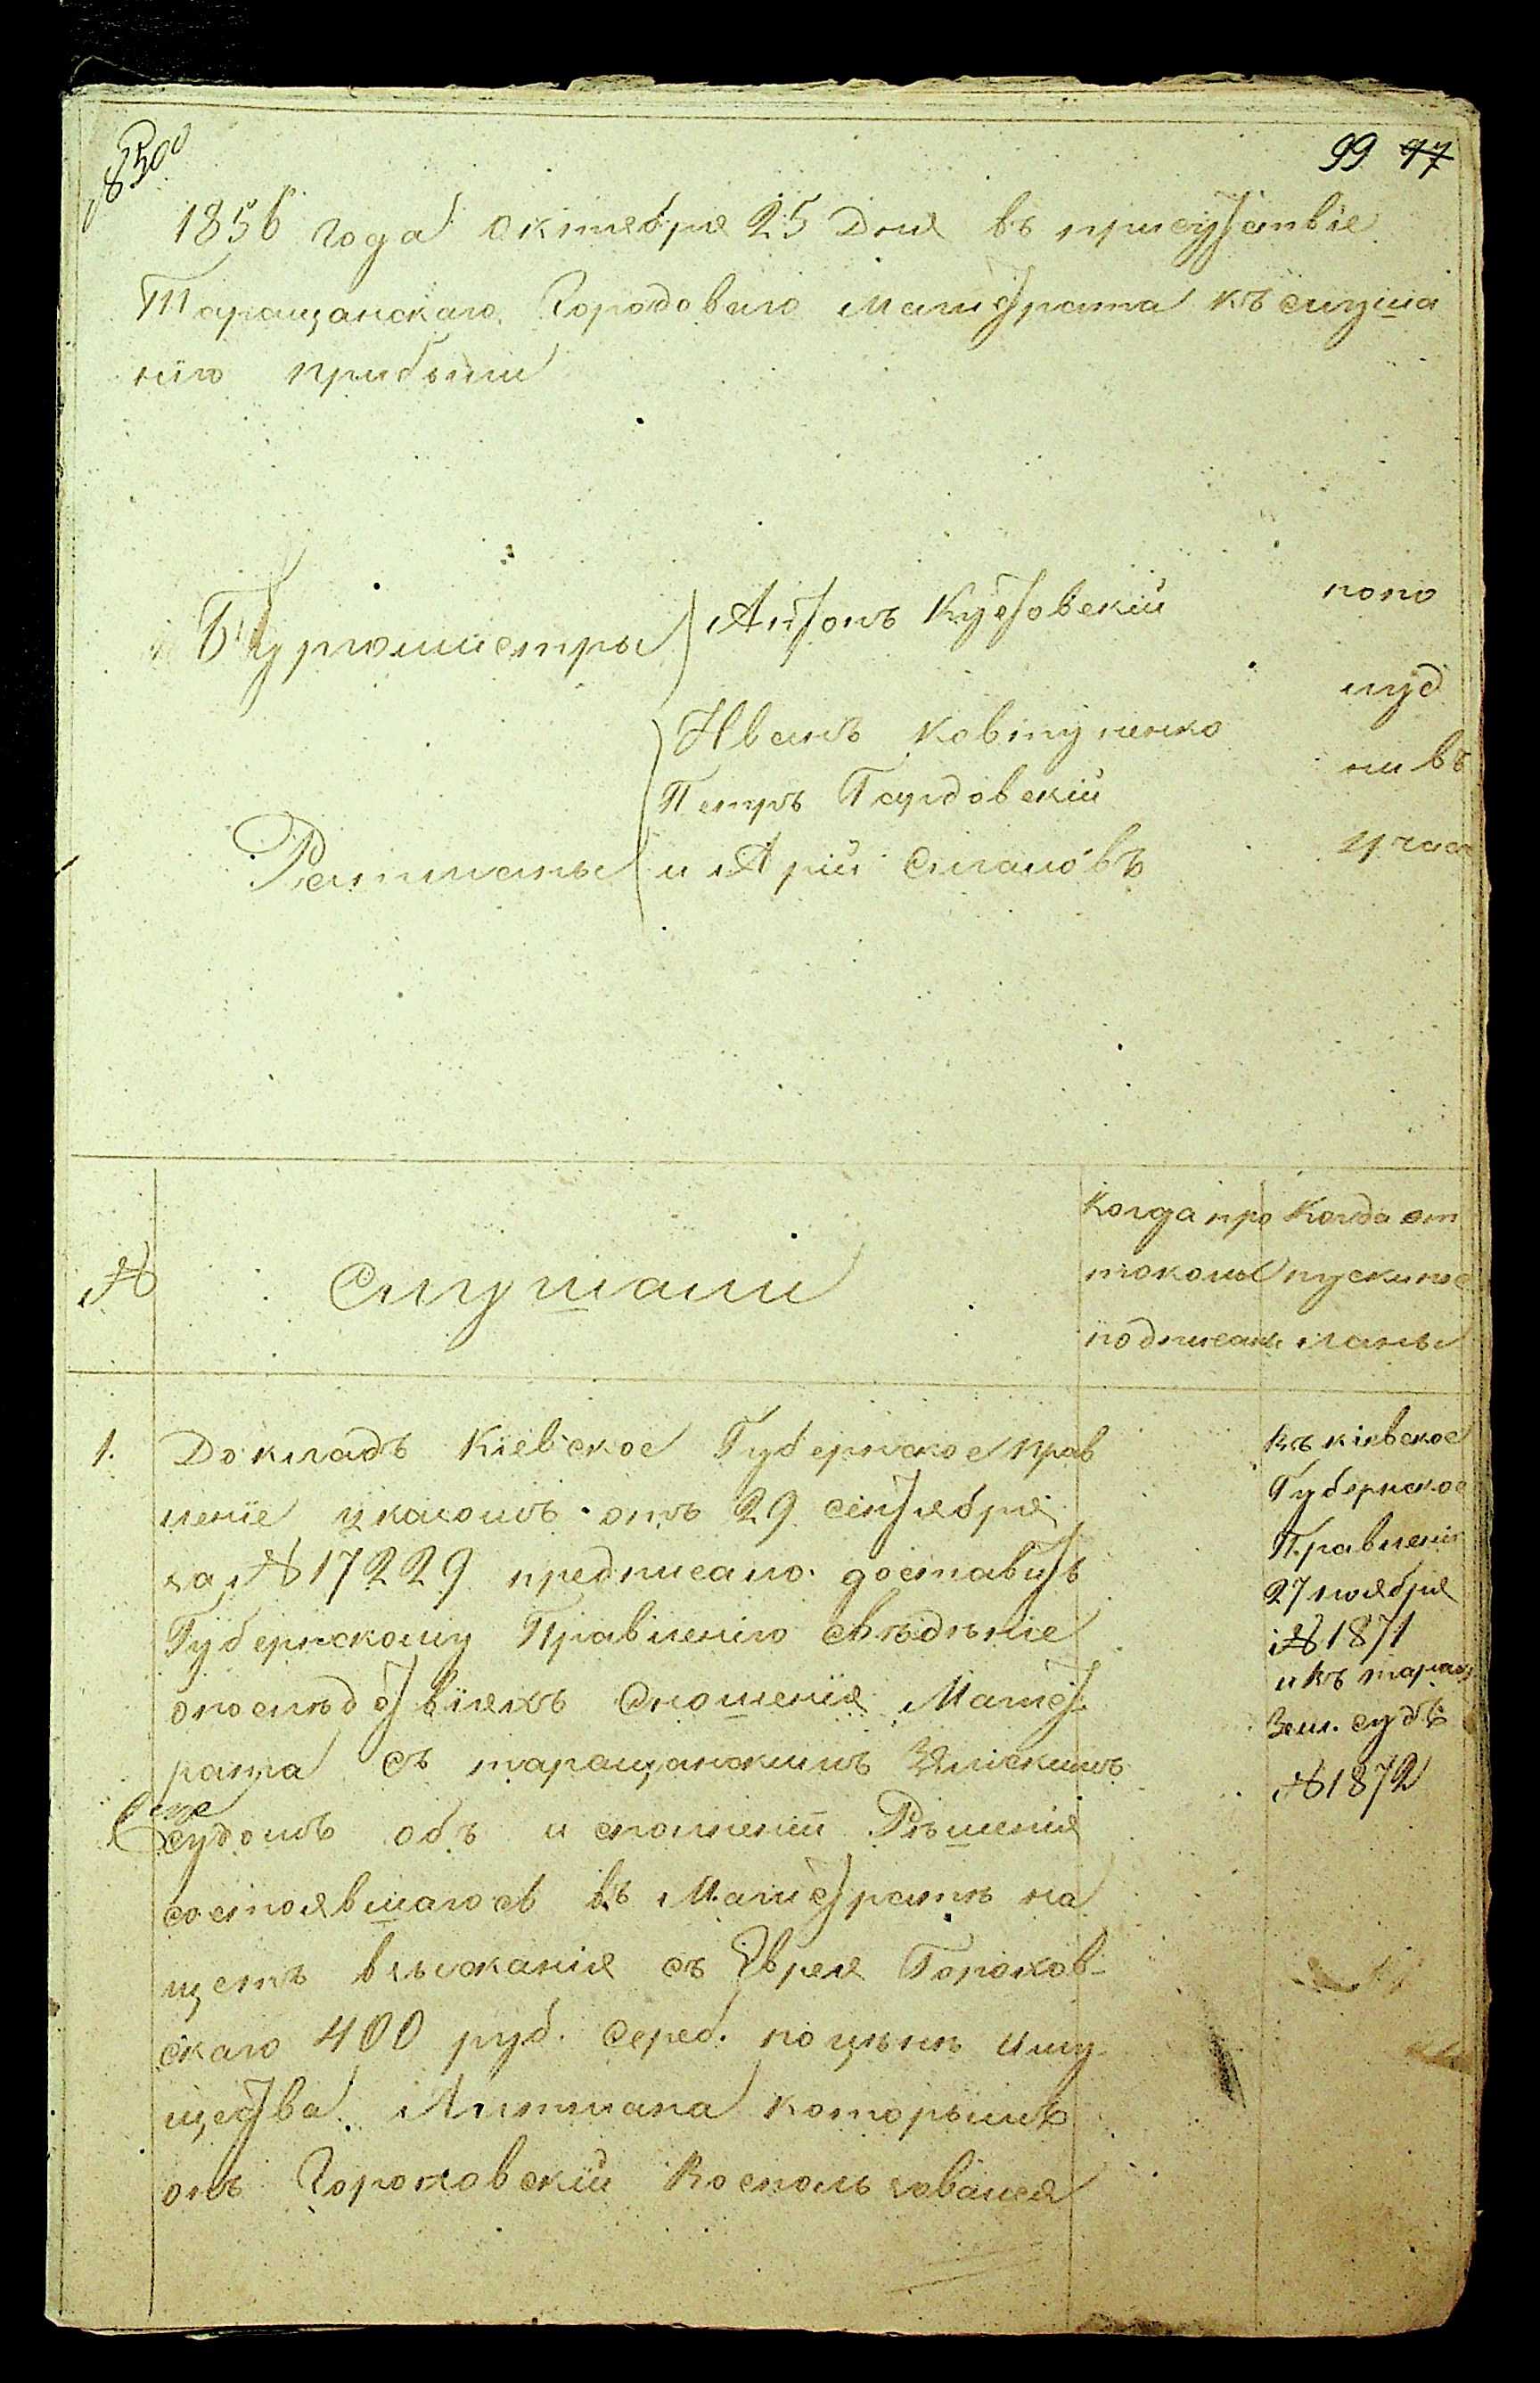 99 97
1856 года октября 25 дня въ присутствіе
Таращанскаго Городоваго Магистрата къ слуша
нію прибыли
Бургомистры Антонъ Кустовскій
Иванъ Ковтуненко
Петръ Гардовскій
Ратманы и Арій Слановъ
попо
луд
ни въ
часа
№ Слушали
Когда про
токолы
подписаны
Когда от
пуски по
сланы
1. Докладъ Кіевское Губернское Прав
леніе указомъ отъ 29 сентября
за № 17229 предписало доставить
Губернскому Правленію свѣдѣніе
опослѣдствіяхъ сношенія Магист
рата съ таращанскимъ Земскимъ
судомъ объ исполненіи Рѣшенія
состоявшагось въ Магистратѣ на
щетъ взысканія съ Еврея Горохов-
скаго 400 руб. сереб. по цѣнѣ иму
щества Литмана которымъ
онъ Гороховскій Воспользовался
Въ кіевское
Губернское
Правленіе
27 ноября
№ 1871
и въ таращ
Зем. судъ
№ 1872